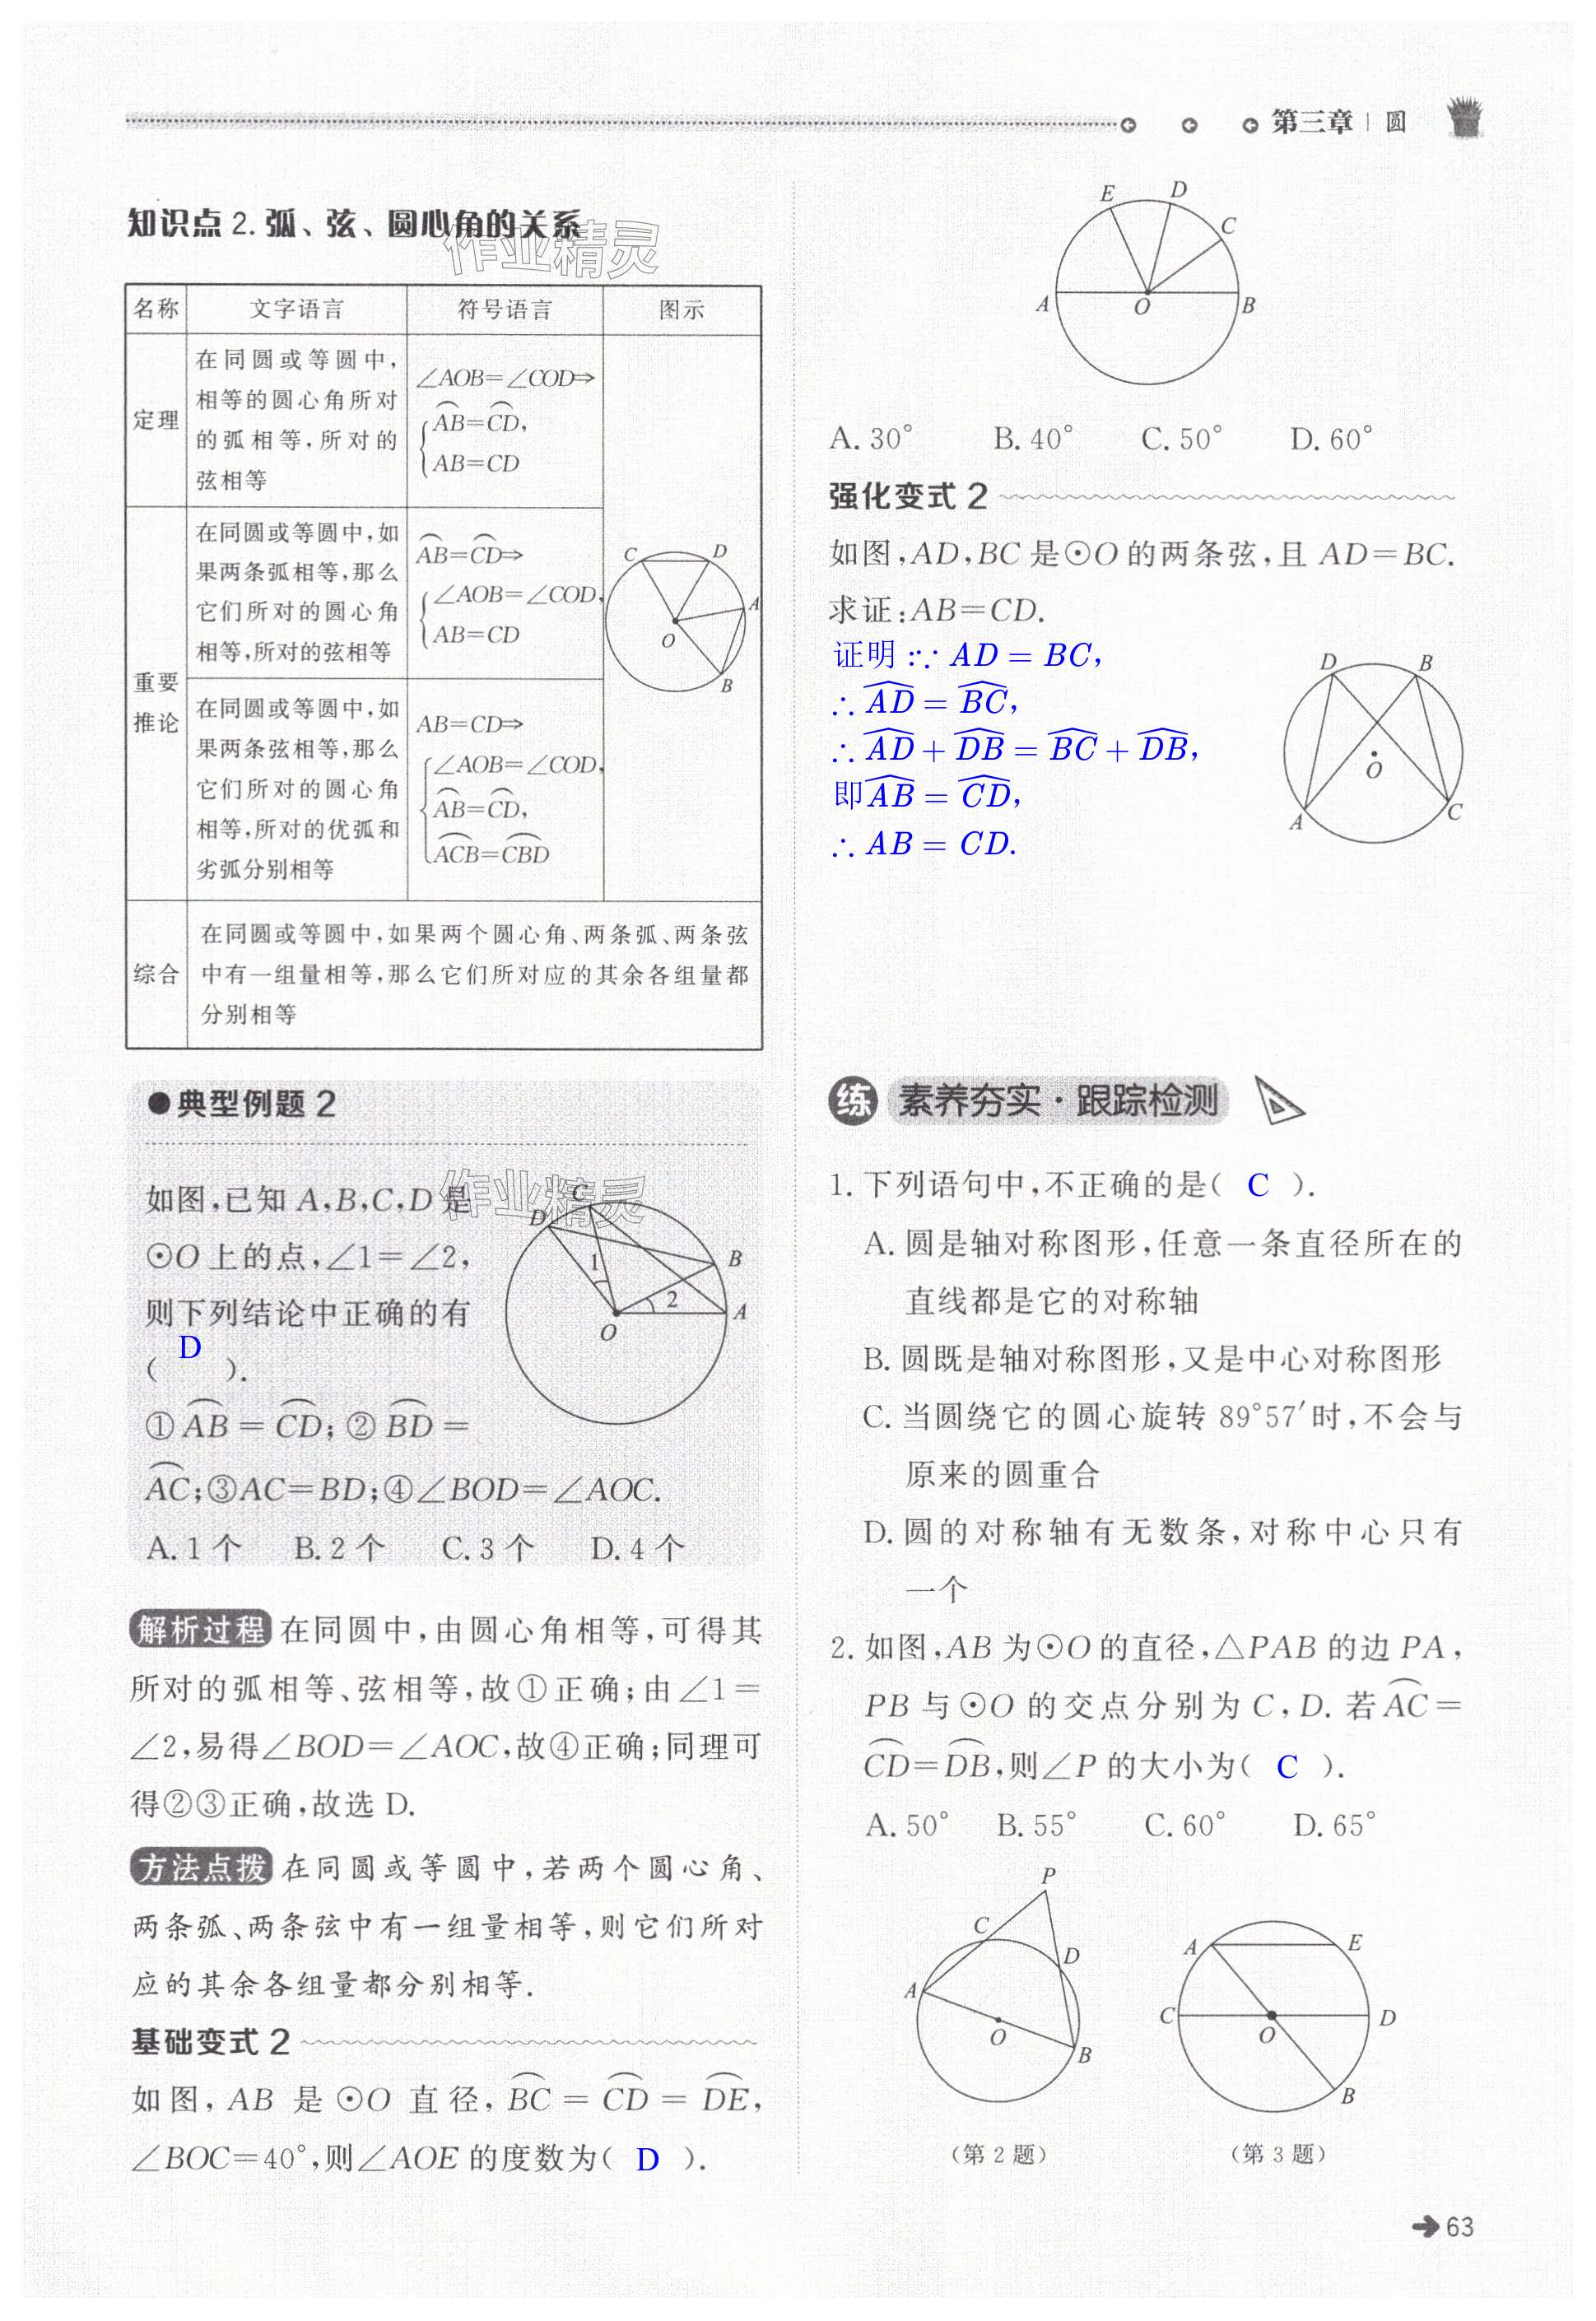 第三章 | 圆
知识点 2. 弧、弦、圆心角的关系
作业精灵
名称 文字语言 符号语言 图示
定理
在同圆或等圆中,
相等的圆心角所对
的弧相等,所对的
弦相等
∠AOB=∠COD⇒
{ A͡B=C͡D,
AB=CD
重要
推论
在同圆或等圆中,如
果两条弧相等,那么
它们所对的圆心角
相等,所对的弦相等
A͡B=C͡D⇒
{ ∠AOB=∠COD,
AB=CD
在同圆或等圆中,如
果两条弦相等,那么
它们所对的圆心角
相等,所对的优弧和
劣弧分别相等
AB=CD⇒
{ ∠AOB=∠COD,
A͡B=C͡D,
A͡CB=C͡BD
C D A O B
综合
在同圆或等圆中,如果两个圆心角、两条弧、两条弦
中有一组量相等,那么它们所对应的其余各组量都
分别相等
●典型例题 2
作业精灵
如图,已知 A,B,C,D 是
⊙O 上的点,∠1=∠2,
则下列结论中正确的有
( D ).
①A͡B=C͡D;②B͡D=
A͡C;③AC=BD;④∠BOD=∠AOC.
A. 1 个 B. 2 个 C. 3 个 D. 4 个
C D B A O 1 2
解析过程 在同圆中,由圆心角相等,可得其
所对的弧相等、弦相等,故①正确;由∠1=
∠2,易得∠BOD=∠AOC,故④正确;同理可
得②③正确,故选 D.
方法点拨 在同圆或等圆中,若两个圆心角、
两条弧、两条弦中有一组量相等,则它们所对
应的其余各组量都分别相等.
基础变式 2
如图, AB 是 ⊙O 直径, B͡C = C͡D = D͡E,
∠BOC=40°,则∠AOE 的度数为( D ).
E D C A O B
A. 30° B. 40° C. 50° D. 60°
强化变式 2
如图,AD,BC 是⊙O 的两条弦,且 AD=BC.
求证:AB=CD.
证明:∵ AD = BC,
∴ A͡D = B͡C,
∴ A͡D + D͡B = B͡C + D͡B,
即A͡B = C͡D,
∴ AB = CD.
D B O A C
练 素养夯实·跟踪检测
1. 下列语句中,不正确的是( C ).
A. 圆是轴对称图形,任意一条直径所在的
直线都是它的对称轴
B. 圆既是轴对称图形,又是中心对称图形
C. 当圆绕它的圆心旋转 89°57′时,不会与
原来的圆重合
D. 圆的对称轴有无数条,对称中心只有
一个
2. 如图,AB 为⊙O 的直径,△PAB 的边 PA,
PB 与 ⊙O 的交点分别为 C,D. 若 A͡C=
C͡D=D͡B,则∠P 的大小为( C ).
A. 50° B. 55° C. 60° D. 65°
P C D A O B
A E C O D B
(第 2 题) (第 3 题)
63